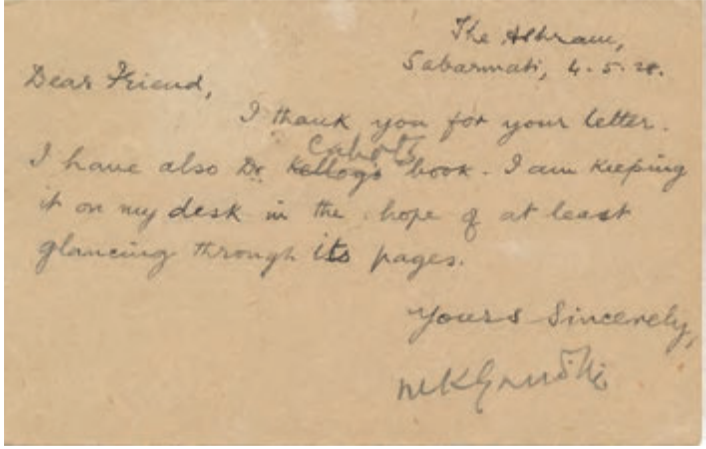 The Ashram,
Sabarmati, 4.5.28.
Dear Friend,
I thank you for your letter.
Cabot's
I have also Dr Kellog's book. I am keeping
it on my desk in the hope of at least
glancing through its pages.
Yours Sincerely,
MKGandhi